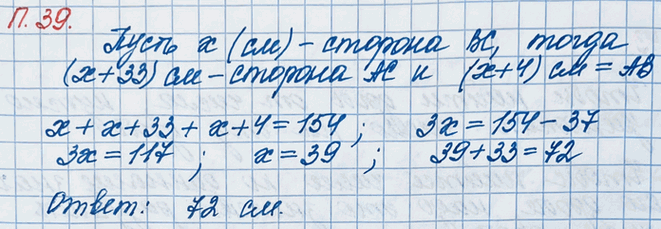 П. 39.
Пусть x (см) – сторона BC, тогда
(x+33) см – сторона AC и (x+4) см = AB
x + x + 33 + x + 4 = 154 ; 3x = 154 – 37
3x = 117 ; x = 39 ; 39 + 33 = 72
Ответ: 72 см.